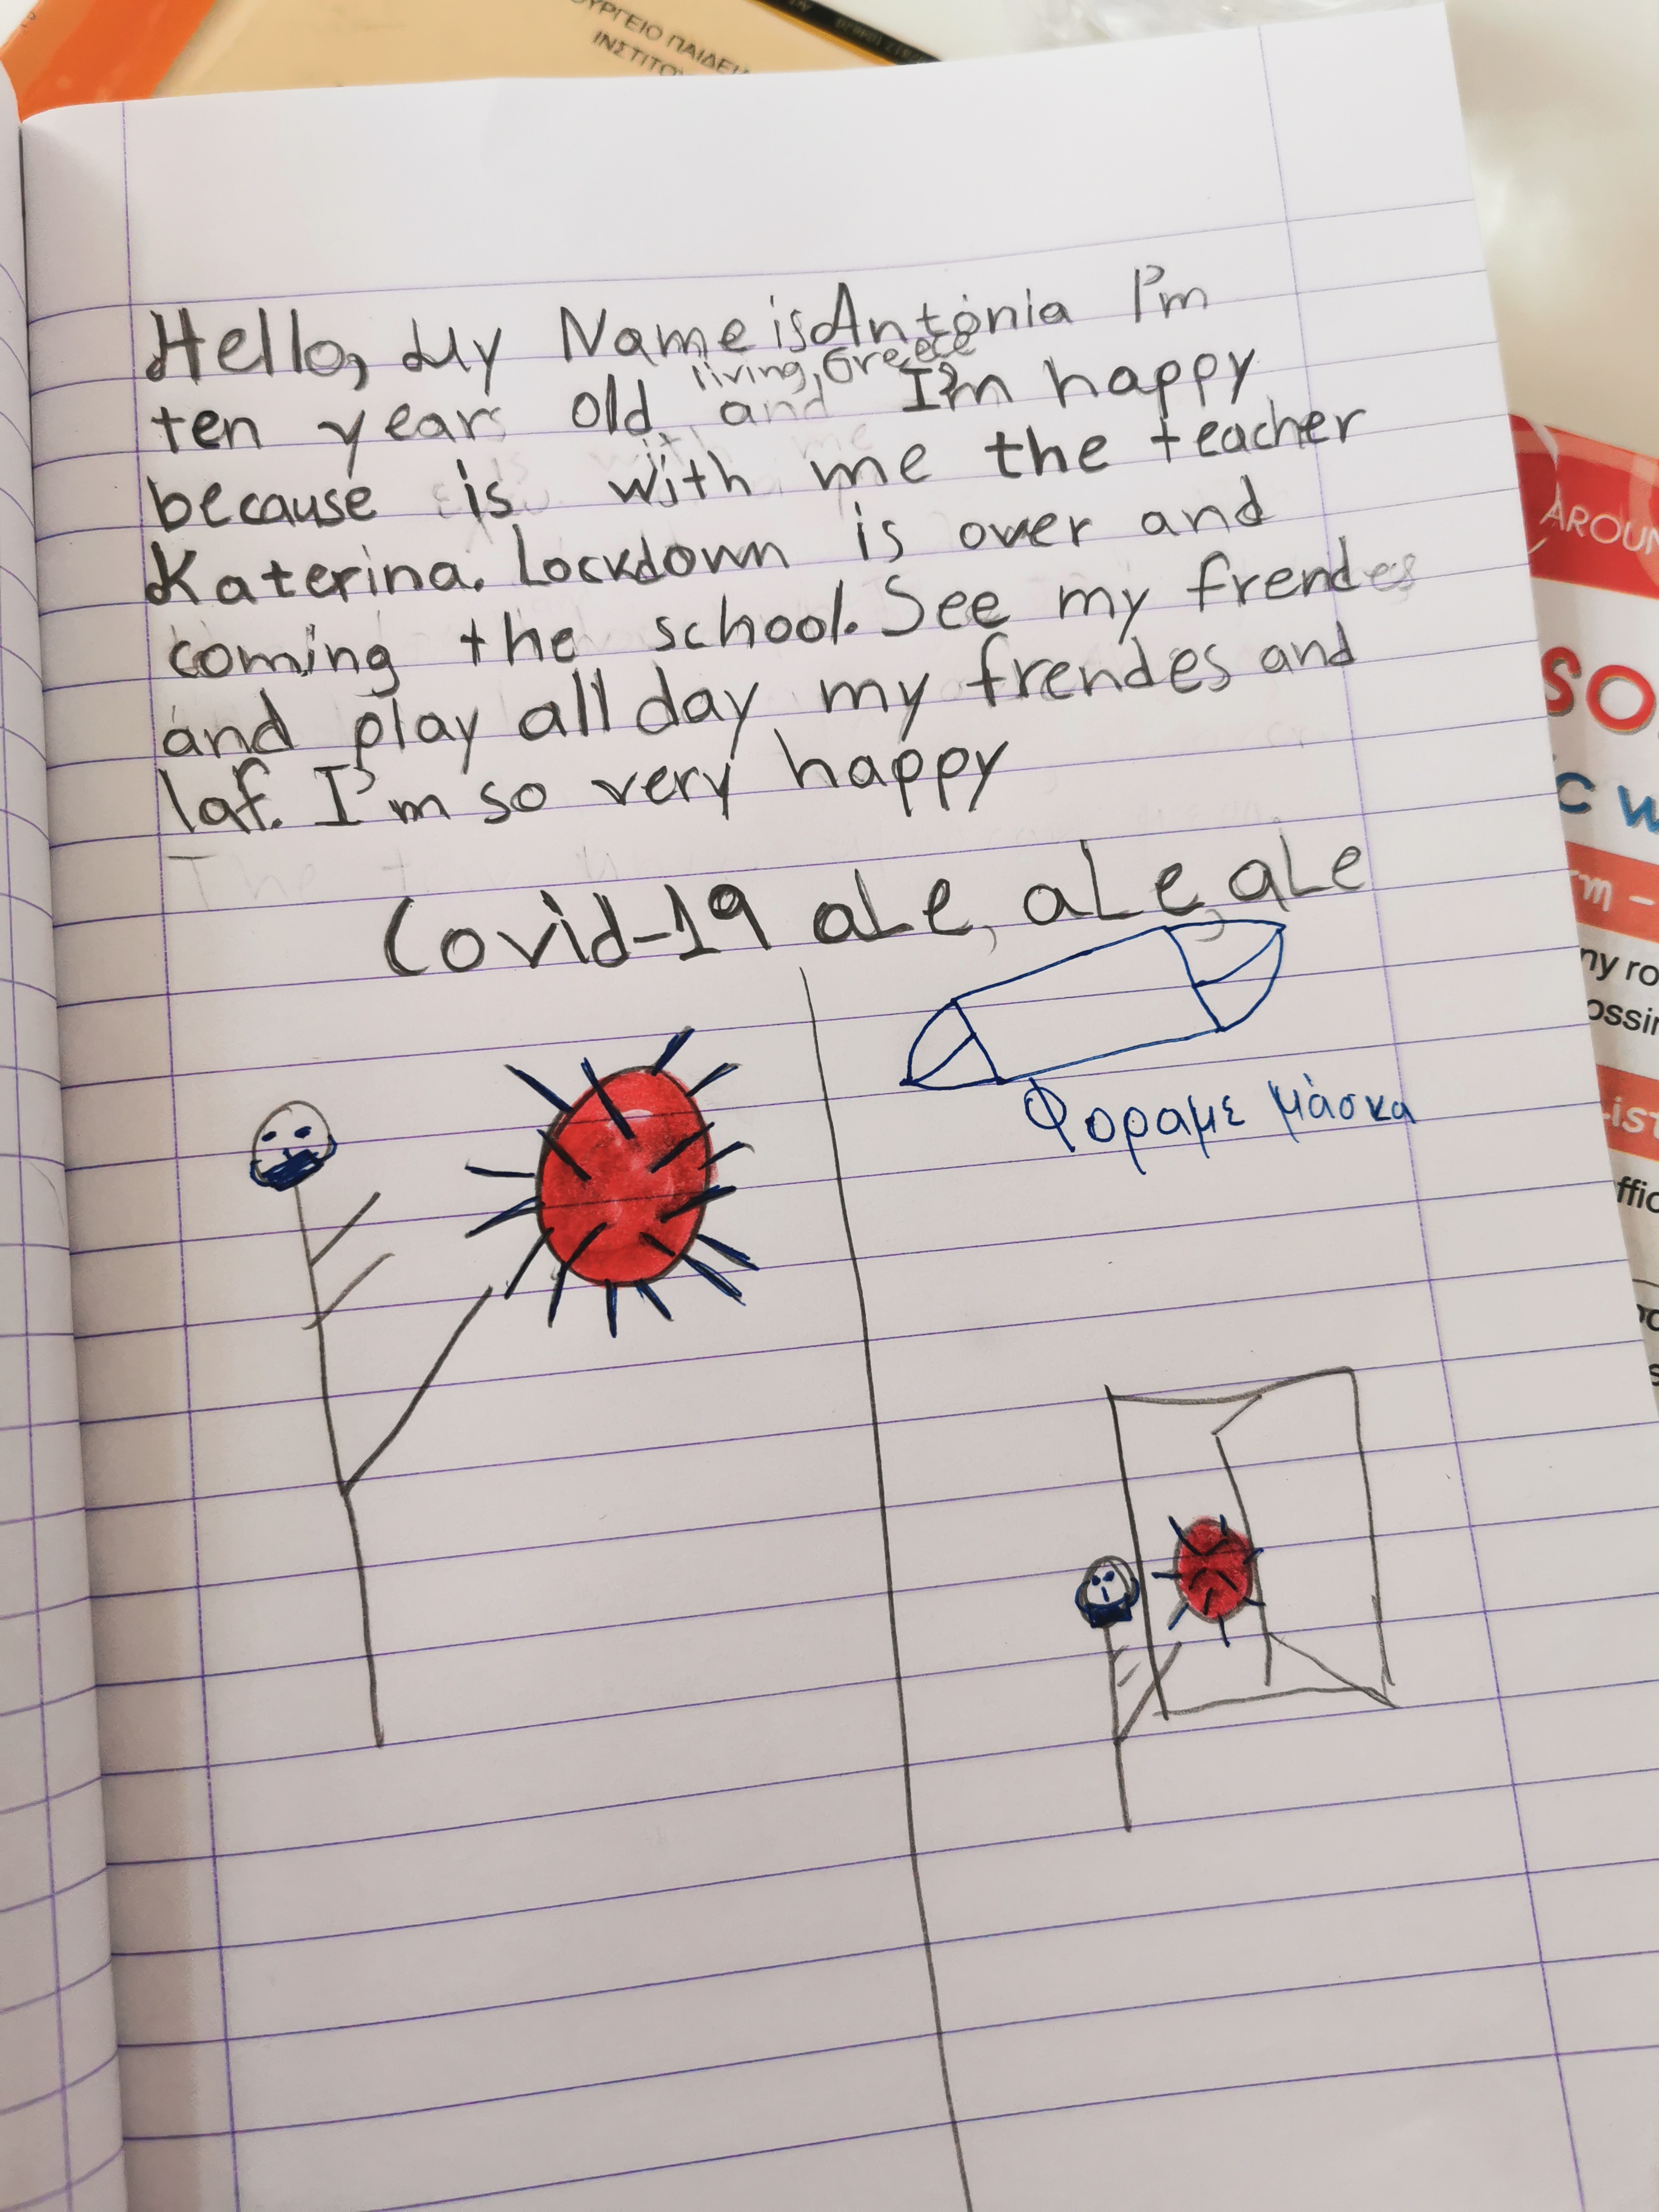 ΟΥΡΓΕΙΟ ΠΑΙΔΕΙ
ΙΝΣΤΙΤΟΥ
Hello, My Name is Antonia I'm
living, Greece
ten years old and I'm happy
because is with me the teacher
Katerina. Lockdown is over and
coming the school. See my frendes
and play all day my frendes and
laf. I'm so very happy
Covid-19 aLe, aLe, aLe
Φοραμε μάσκα
AROUN
SO
c w
rm -
ny ro
ossin
List
ffic